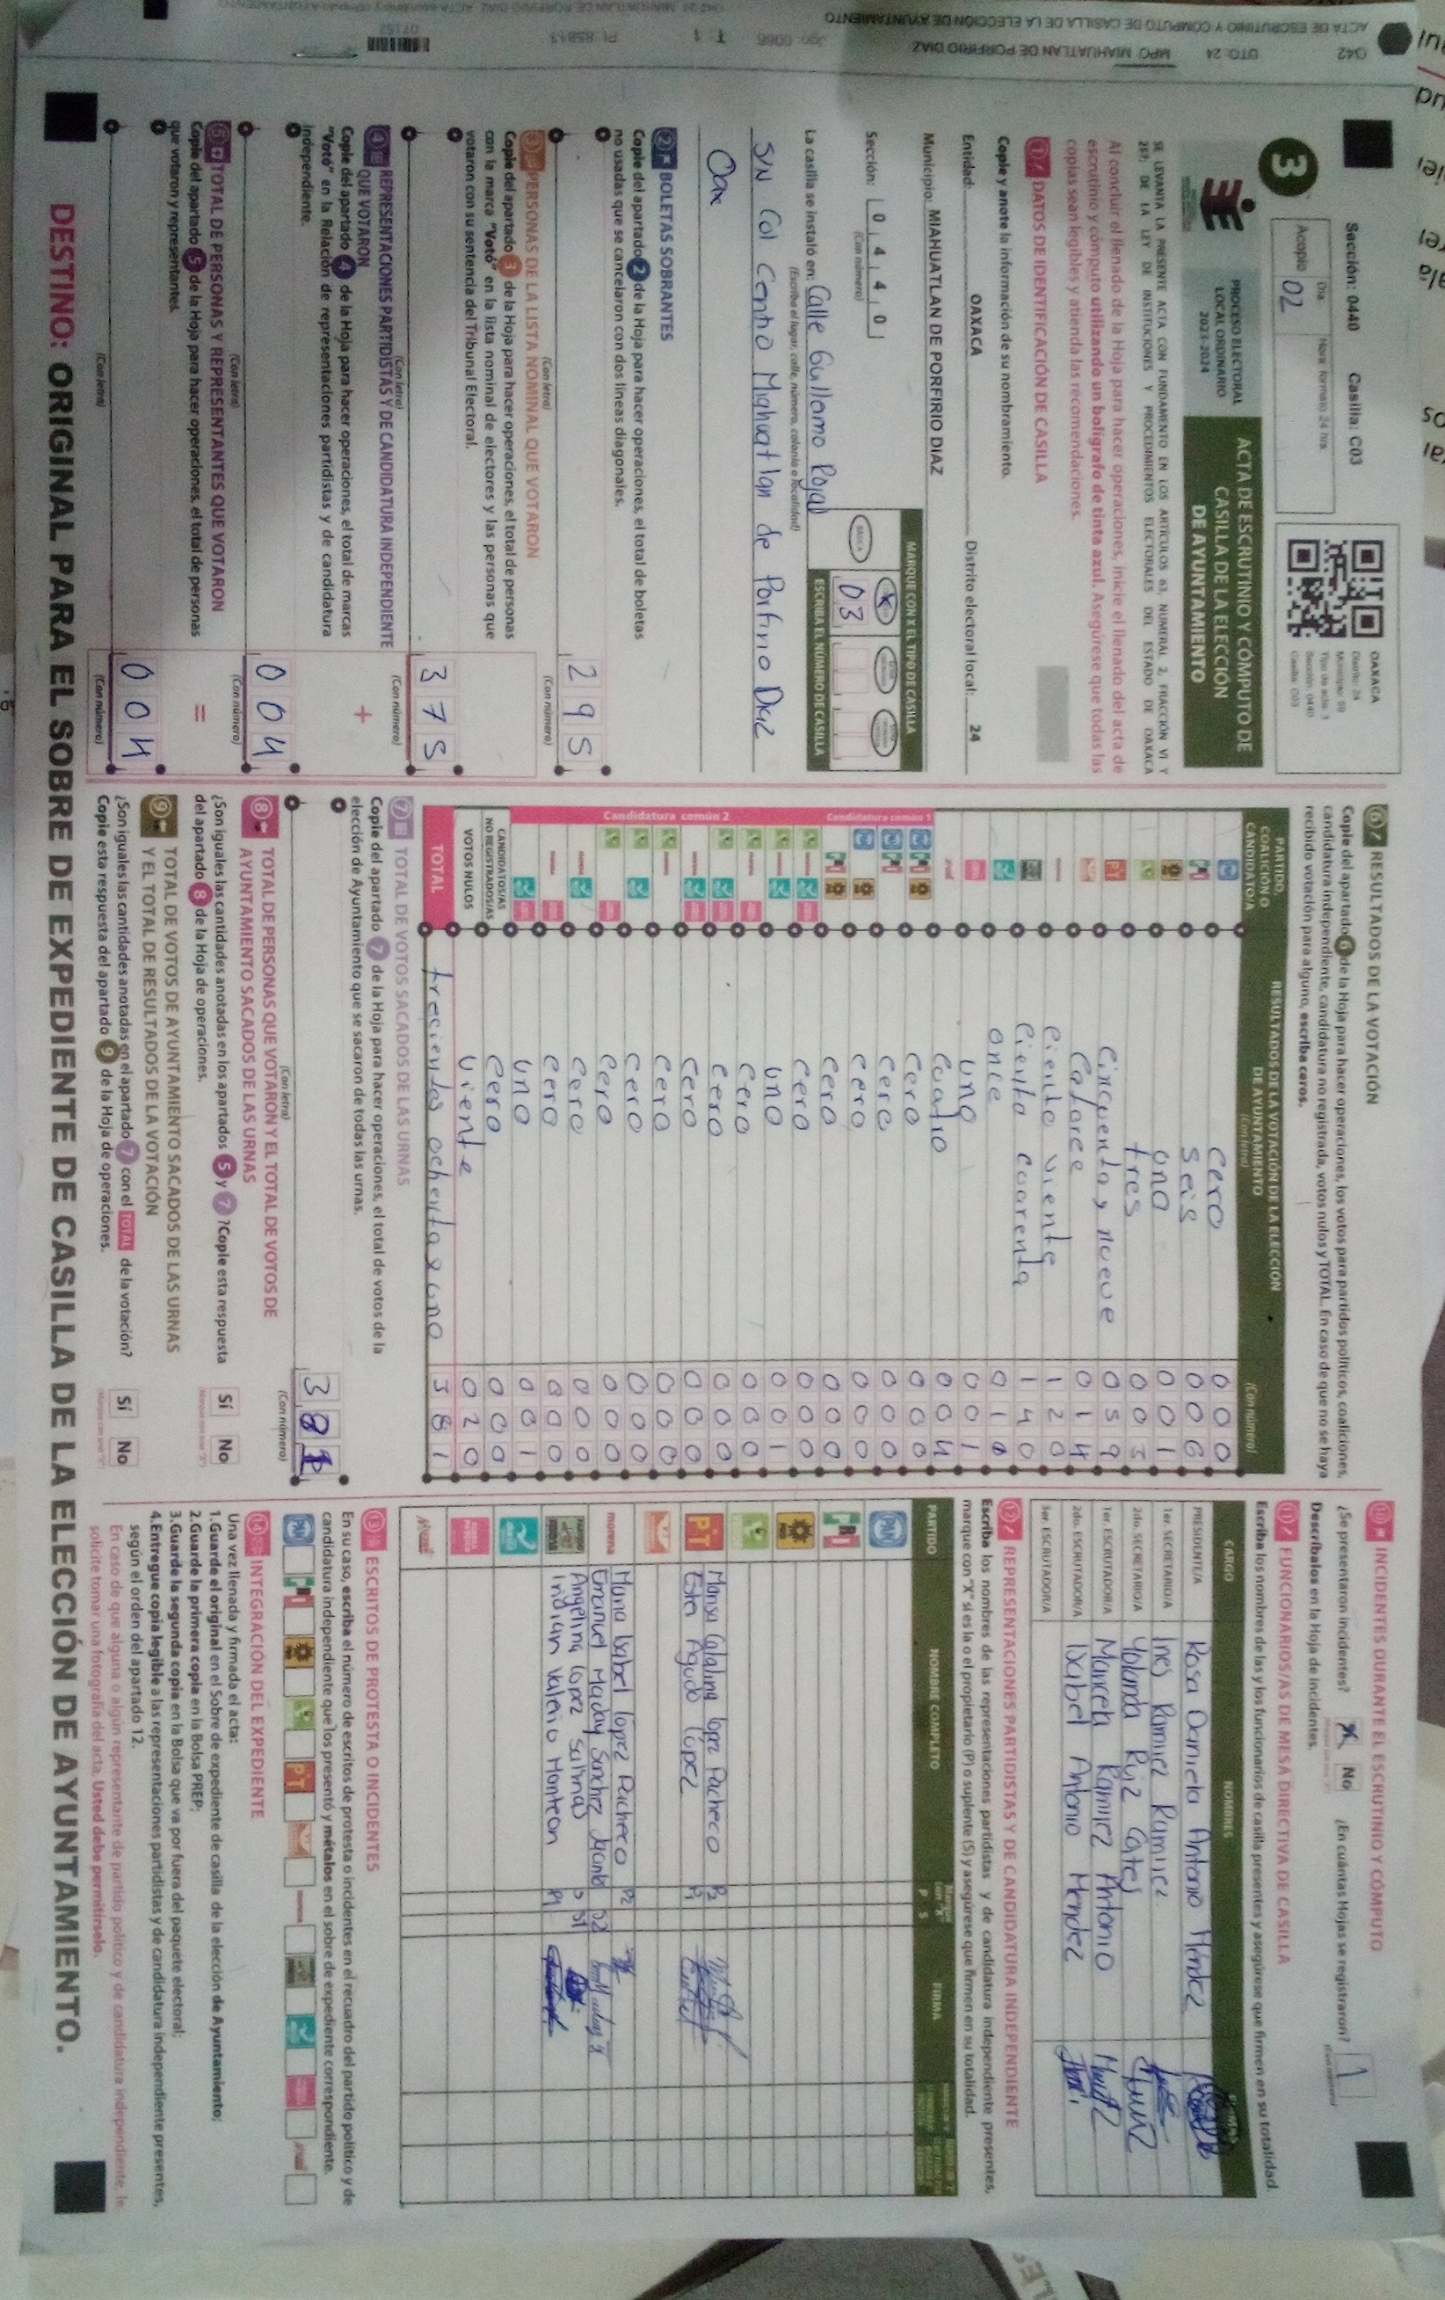 Sección: 0440 Casilla: C03
3
Día
Hora formato 24 hrs.
Acopio
02
OAXACA
PROCESO ELECTORAL
LOCAL ORDINARIO
2023-2024
ACTA DE ESCRUTINIO Y CÓMPUTO DE
CASILLA DE LA ELECCIÓN
DE AYUNTAMIENTO
SE LEVANTA LA PRESENTE ACTA CON FUNDAMENTO EN LOS ARTÍCULOS 63, NUMERAL 2, FRACCIÓN VI Y
DE LA LEY DE INSTITUCIONES Y PROCEDIMIENTOS ELECTORALES DEL ESTADO DE OAXACA
Al concluir el llenado de la Hoja para hacer operaciones, inicie el llenado del acta de
escrutinio y cómputo utilizando un bolígrafo de tinta azul. Asegúrese que todas las
copias sean legibles y atienda las recomendaciones.
1 DATOS DE IDENTIFICACIÓN DE CASILLA
Copie y anote la información de su nombramiento.
Entidad: OAXACA Distrito electoral local: 24
Municipio: MIAHUATLAN DE PORFIRIO DIAZ
Sección: 0 4 4 0
(Con número)
MARQUE CON X EL TIPO DE CASILLA
BÁSICA
X
03
ESCRIBA EL NÚMERO DE CASILLA
La casilla se instaló en: Calle Guillermo Rojas
(Escriba el lugar, calle, número, colonia o localidad)
S/N Col Centro Miahuatlan de Porfirio Diaz
Oax
2 BOLETAS SOBRANTES
Copie del apartado 2 de la Hoja para hacer operaciones, el total de boletas
no usadas que se cancelaron con dos líneas diagonales.
2 9 5
(Con letra) (Con número)
3 PERSONAS DE LA LISTA NOMINAL QUE VOTARON
Copie del apartado 3 de la Hoja para hacer operaciones, el total de personas
con la marca "Votó" en la lista nominal de electores y las personas que
votaron con su sentencia del Tribunal Electoral.
3 7 5
(Con letra) (Con número)
4 REPRESENTACIONES PARTIDISTAS Y DE CANDIDATURA INDEPENDIENTE
QUE VOTARON
+
Copie del apartado 4 de la Hoja para hacer operaciones, el total de marcas
"Votó" en la Relación de representaciones partidistas y de candidatura
independiente.
0 0 4
(Con letra) (Con número)
5 TOTAL DE PERSONAS Y REPRESENTANTES QUE VOTARON
=
Copie del apartado 5 de la Hoja para hacer operaciones, el total de personas
que votaron y representantes.
0 0 4
(Con letra) (Con número)
6 RESULTADOS DE LA VOTACIÓN
Copie del apartado 6 de la Hoja para hacer operaciones, los votos para partidos políticos, coaliciones,
candidatura independiente, candidatura no registrada, votos nulos y TOTAL. En caso de que no se haya
recibido votación para alguno, escriba ceros.
PARTIDO,
COALICIÓN O
CANDIDATO/A
RESULTADOS DE LA VOTACIÓN DE LA ELECCIÓN
DE AYUNTAMIENTO
(Con letra)
(Con número)
cero 0 0 0
seis 0 0 6
uno 0 0 1
tres 0 0 3
Cincuenta y nueve 0 5 9
Catorce 0 1 4
Ciento viente 1 2 0
Ciento cuarenta 1 4 0
once
uno 0 0 1
Cuatro 0 0 4
Candidatura común 1
cero 0 0 0
cero 0 0 0
cero 0 0 0
cero 0 0 0
Candidatura común 2
cero 0 0 0
uno 0 0 1
cero 0 0 0
cero 0 0 0
cero 0 0 0
cero 0 0 0
cero 0 0 0
cero 0 0 0
cero 0 0 0
cero 0 0 0
uno 0 0 1
CANDIDATOS/AS
NO REGISTRADOS/AS
cero 0 0 0
VOTOS NULOS
viente 0 2 0
TOTAL
trecientos ochenta y uno 3 8 1
7 TOTAL DE VOTOS SACADOS DE LAS URNAS
Copie del apartado 7 de la Hoja para hacer operaciones, el total de votos de la
elección de Ayuntamiento que se sacaron de todas las urnas.
3 8 1
(Con letra) (Con número)
8 TOTAL DE PERSONAS QUE VOTARON Y EL TOTAL DE VOTOS DE
AYUNTAMIENTO SACADOS DE LAS URNAS
¿Son iguales las cantidades anotadas en los apartados 5 y 7 ? Copie esta respuesta
del apartado 8 de la Hoja de operaciones.
Sí No
9 TOTAL DE VOTOS DE AYUNTAMIENTO SACADOS DE LAS URNAS
Y EL TOTAL DE RESULTADOS DE LA VOTACIÓN
¿Son iguales las cantidades anotadas en el apartado 7 con el TOTAL de la votación?
Copie esta respuesta del apartado 9 de la Hoja de operaciones.
Sí No
10 INCIDENTES DURANTE EL ESCRUTINIO Y CÓMPUTO
¿Se presentaron incidentes? X No ¿En cuántas Hojas se registraron? 1
Descríbalos en la Hoja de Incidentes.
11 FUNCIONARIOS/AS DE MESA DIRECTIVA DE CASILLA
Escriba los nombres de las y los funcionarios de casilla presentes y asegúrese que firmen en su totalidad.
CARGO NOMBRES
PRESIDENTE/A Rosa Daniela Antonio Méndez
1er. SECRETARIO/A Ines Ramirez Ramirez
2do. SECRETARIO/A Yolanda Ruiz
1er. ESCRUTADOR/A Marcela Ramirez Antonio
2do. ESCRUTADOR/A Isabel Antonio Mendez
3er. ESCRUTADOR/A
12 REPRESENTACIONES PARTIDISTAS Y DE CANDIDATURA INDEPENDIENTE
Escriba los nombres de las representaciones partidistas y de candidatura independiente presentes,
marque con "X" si es la o el propietario (P) o suplente (S) y asegúrese que firmen en su totalidad.
PARTIDO NOMBRE COMPLETO P S FIRMA
PAN
PRI
PT
Catalina lopez Pacheco P2
Ester Agudo López P1
morena
Maria Isabel lópez Pacheco P2
Emanuel Maday Sanchez Jacinto S2
Angelina lopez Salinas S1
Iridian Valerio Monteon P1
13 ESCRITOS DE PROTESTA O INCIDENTES
En su caso, escriba el número de escritos de protesta o incidentes en el recuadro del partido político y de
candidatura independiente que los presentó y métalos en el sobre de expediente correspondiente.
PAN
PT
14 INTEGRACIÓN DEL EXPEDIENTE
Una vez llenada y firmada el acta:
1.Guarde el original en el Sobre de expediente de casilla de la elección de Ayuntamiento;
2.Guarde la primera copia en la Bolsa PREP;
3.Guarde la segunda copia en la Bolsa que va por fuera del paquete electoral;
4.Entregue copia legible a las representaciones partidistas y de candidatura independiente presentes,
según el orden del apartado 12.
En caso de que alguna o algún representante de partido político y de candidatura independiente, le
solicite tomar una fotografía del acta. Usted debe permitírselo.
DESTINO: ORIGINAL PARA EL SOBRE DE EXPEDIENTE DE CASILLA DE LA ELECCIÓN DE AYUNTAMIENTO.
042 DTO: 24 MPO: MIAHUATLAN DE PORFIRIO DIAZ
ACTA DE ESCRUTINIO Y CÓMPUTO DE CASILLA DE LA ELECCIÓN DE AYUNTAMIENTO